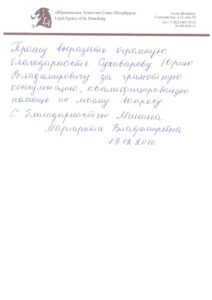 «Юридическое Агентство Санкт-Петербурга»
Legal Agency of St. Petersburg
Санкт-Петербург
Прошу выразить огромную
благодарность Суховарову Юрию
Владимировичу за грамотную
консультацию, квалифицированную
помощь по моему вопросу
С благодарностью Минина
Маргарита Владимировна
19.12.2010